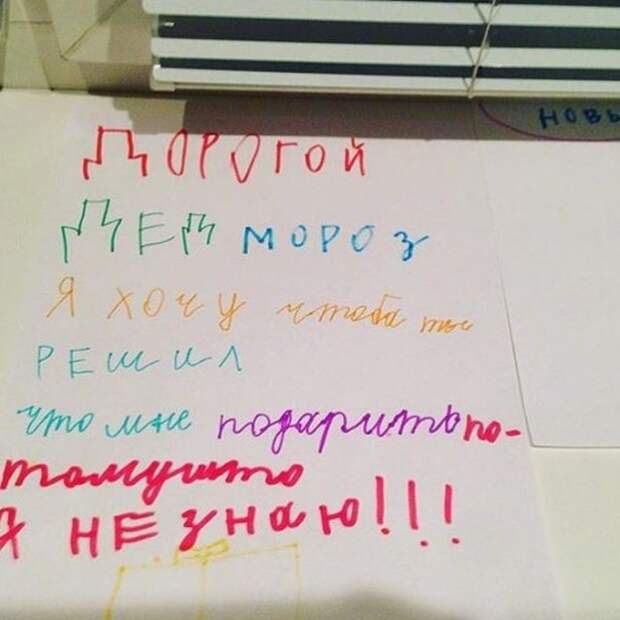 ДОРОГОЙ
ДЕД МОРОЗ
Я ХОЧУ чтоба ты
РЕШИЛ
что мне подарить по-
томушто
Я НЕ ЗНАЮ!!!
НОВЫ